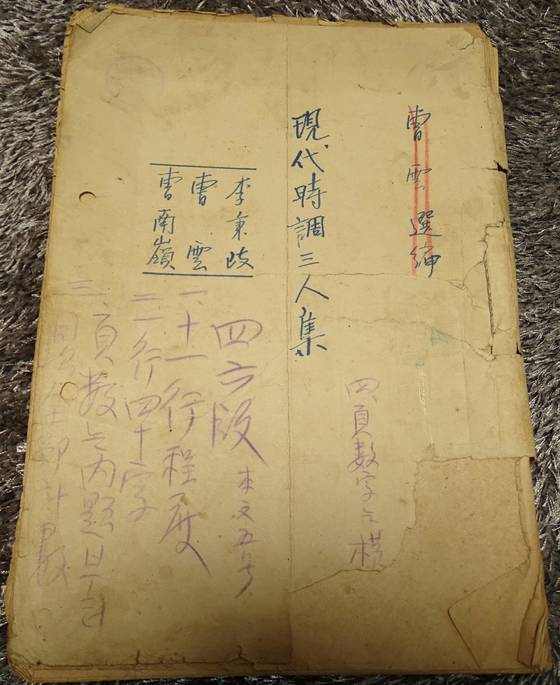 曺雲選編
現代時調三人集
李秉岐
曺雲
曺南嶺
四頁数字는橫
四六版 本文五号
一. 十一行程度
二. 一行四十字
三. 頁数는内題부터